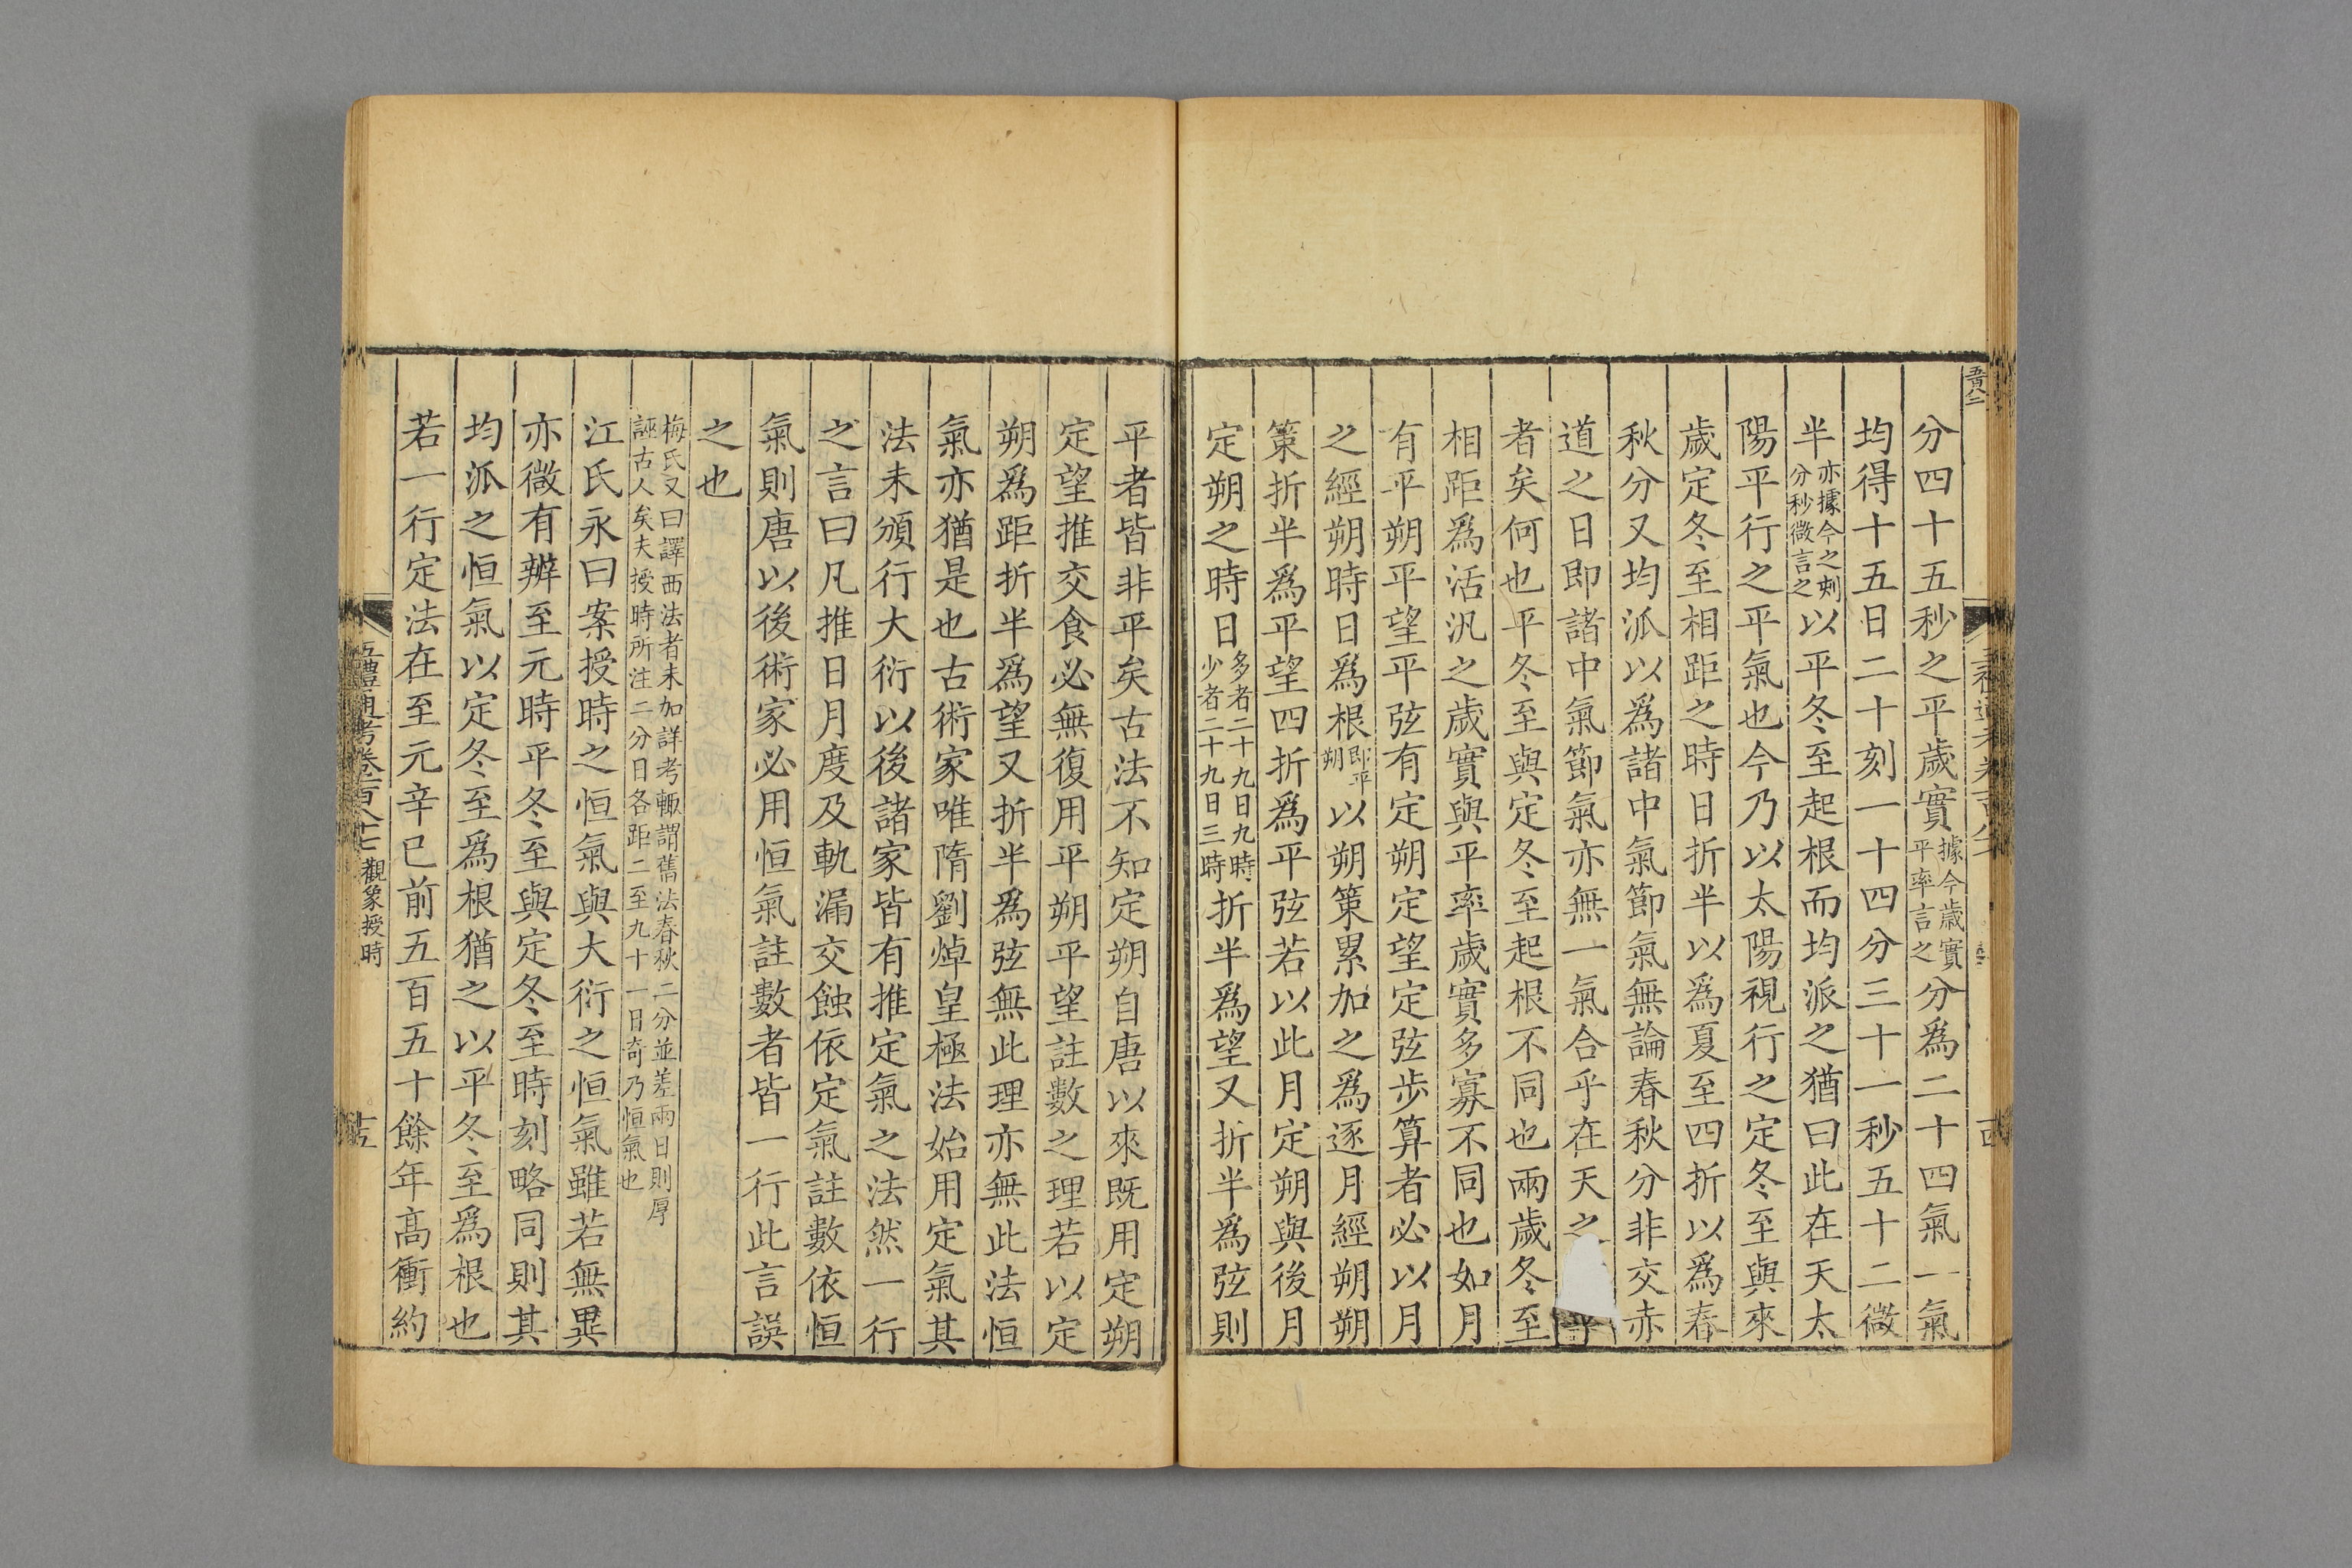 分四十五秒之平歲實據今歲實平率言之分爲二十四氣一氣
均得十五日二十刻一十四分三十一秒五十二微
半亦據今之刻分秒微言之以平冬至起根而均派之猶曰此在天太
陽平行之平氣也今乃以太陽視行之定冬至與來
歲定冬至相距之時日折半以爲夏至四折以爲春
秋分又均派以爲諸中氣節氣無論春秋分非交赤
道之日即諸中氣節氣亦無一氣合乎在天之平
者矣何也平冬至與定冬至起根不同也兩歲冬至
相距爲活汎之歲實與平率歲實多寡不同也如月
有平朔平望平弦有定朔定望定弦步算者必以月
之經朔時日爲根即平朔以朔策累加之爲逐月經朔朔
策折半爲平望四折爲平弦若以此月定朔與後月
定朔之時日多者二十九日九時少者二十九日三時折半爲望又折半爲弦則
平者皆非平矣古法不知定朔自唐以來既用定朔
定望推交食必無復用平朔平望註數之理若以定
朔爲距折半爲望又折半爲弦無此理亦無此法恒
氣亦猶是也古術家唯隋劉焯皇極法始用定氣其
法未頒行大衍以後諸家皆有推定氣之法然一行
之言曰凡推日月度及軌漏交蝕依定氣註數依恒
氣則唐以後術家必用恒氣註數者皆一行此言誤
之也
梅氏又曰譯西法者未加詳考輒謂舊法春秋二分並差兩日則厚
誣古人矣夫授時所注二分日各距二至九十一日奇乃恒氣也
江氏永曰案授時之恒氣與大衍之恒氣雖若無異
亦微有辨至元時平冬至與定冬至時刻略同則其
均派之恒氣以定冬至爲根猶之以平冬至爲根也
若一行定法在至元辛已前五百五十餘年高衝約
五禮通考卷百八十七 觀象授時